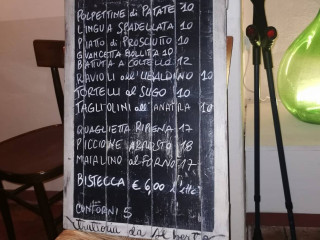 POLPETTINE di PATATE 10
LINGUA SPADELLATA 10
PIATTO di PROSCIUTTO 10
GUANCETTA BOLLITA 10
BATTUTA A COLTELLO 12
RAVIOLI all'UBALDINO 10
TORTELLI al SUGO 10
TAGLIOLINI all'ANATRA 10
QUAGLIETTA RIPIENA 17
PICCIONE ARROSTO 18
MAIALINO al FORNO 17
BISTECCA € 6,00 l'etto
CONTORNI 5
Trattoria da